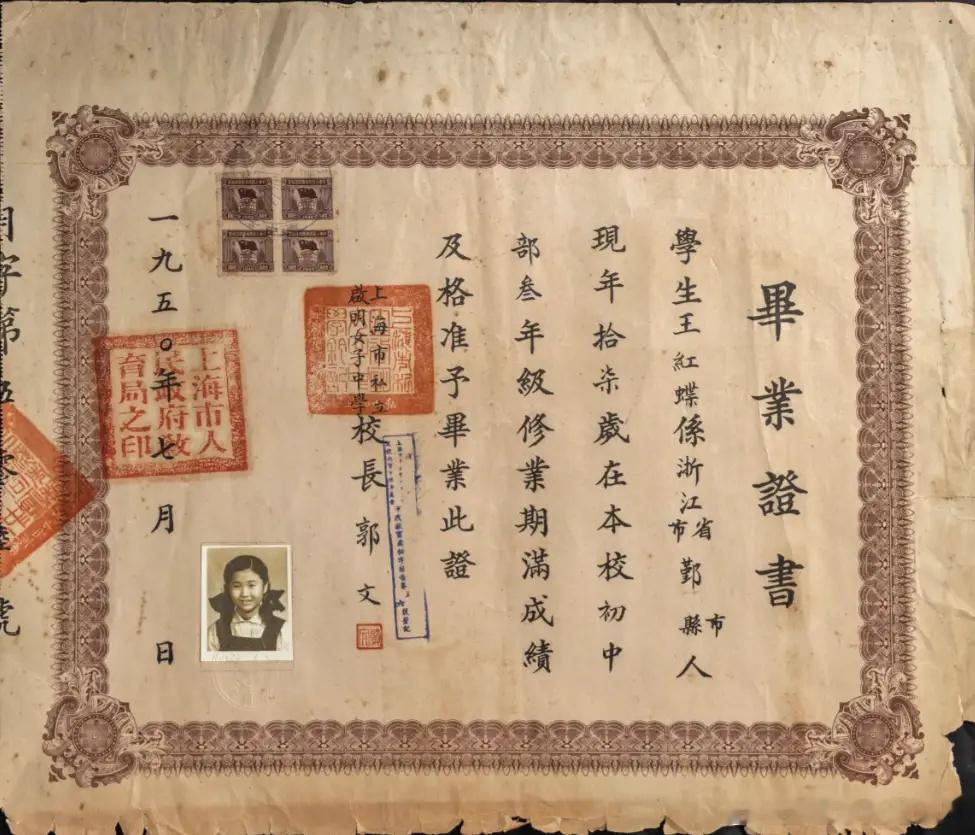 畢業證書
學生王紅蝶係浙江省市鄞縣市人
現年拾柒歲在本校初中
部叁年級修業期滿成績
及格准予畢業此證
上海市私立
啟明女子中學校長郭文
一九五〇年七月 日
上海市人
民政府教
育局之印